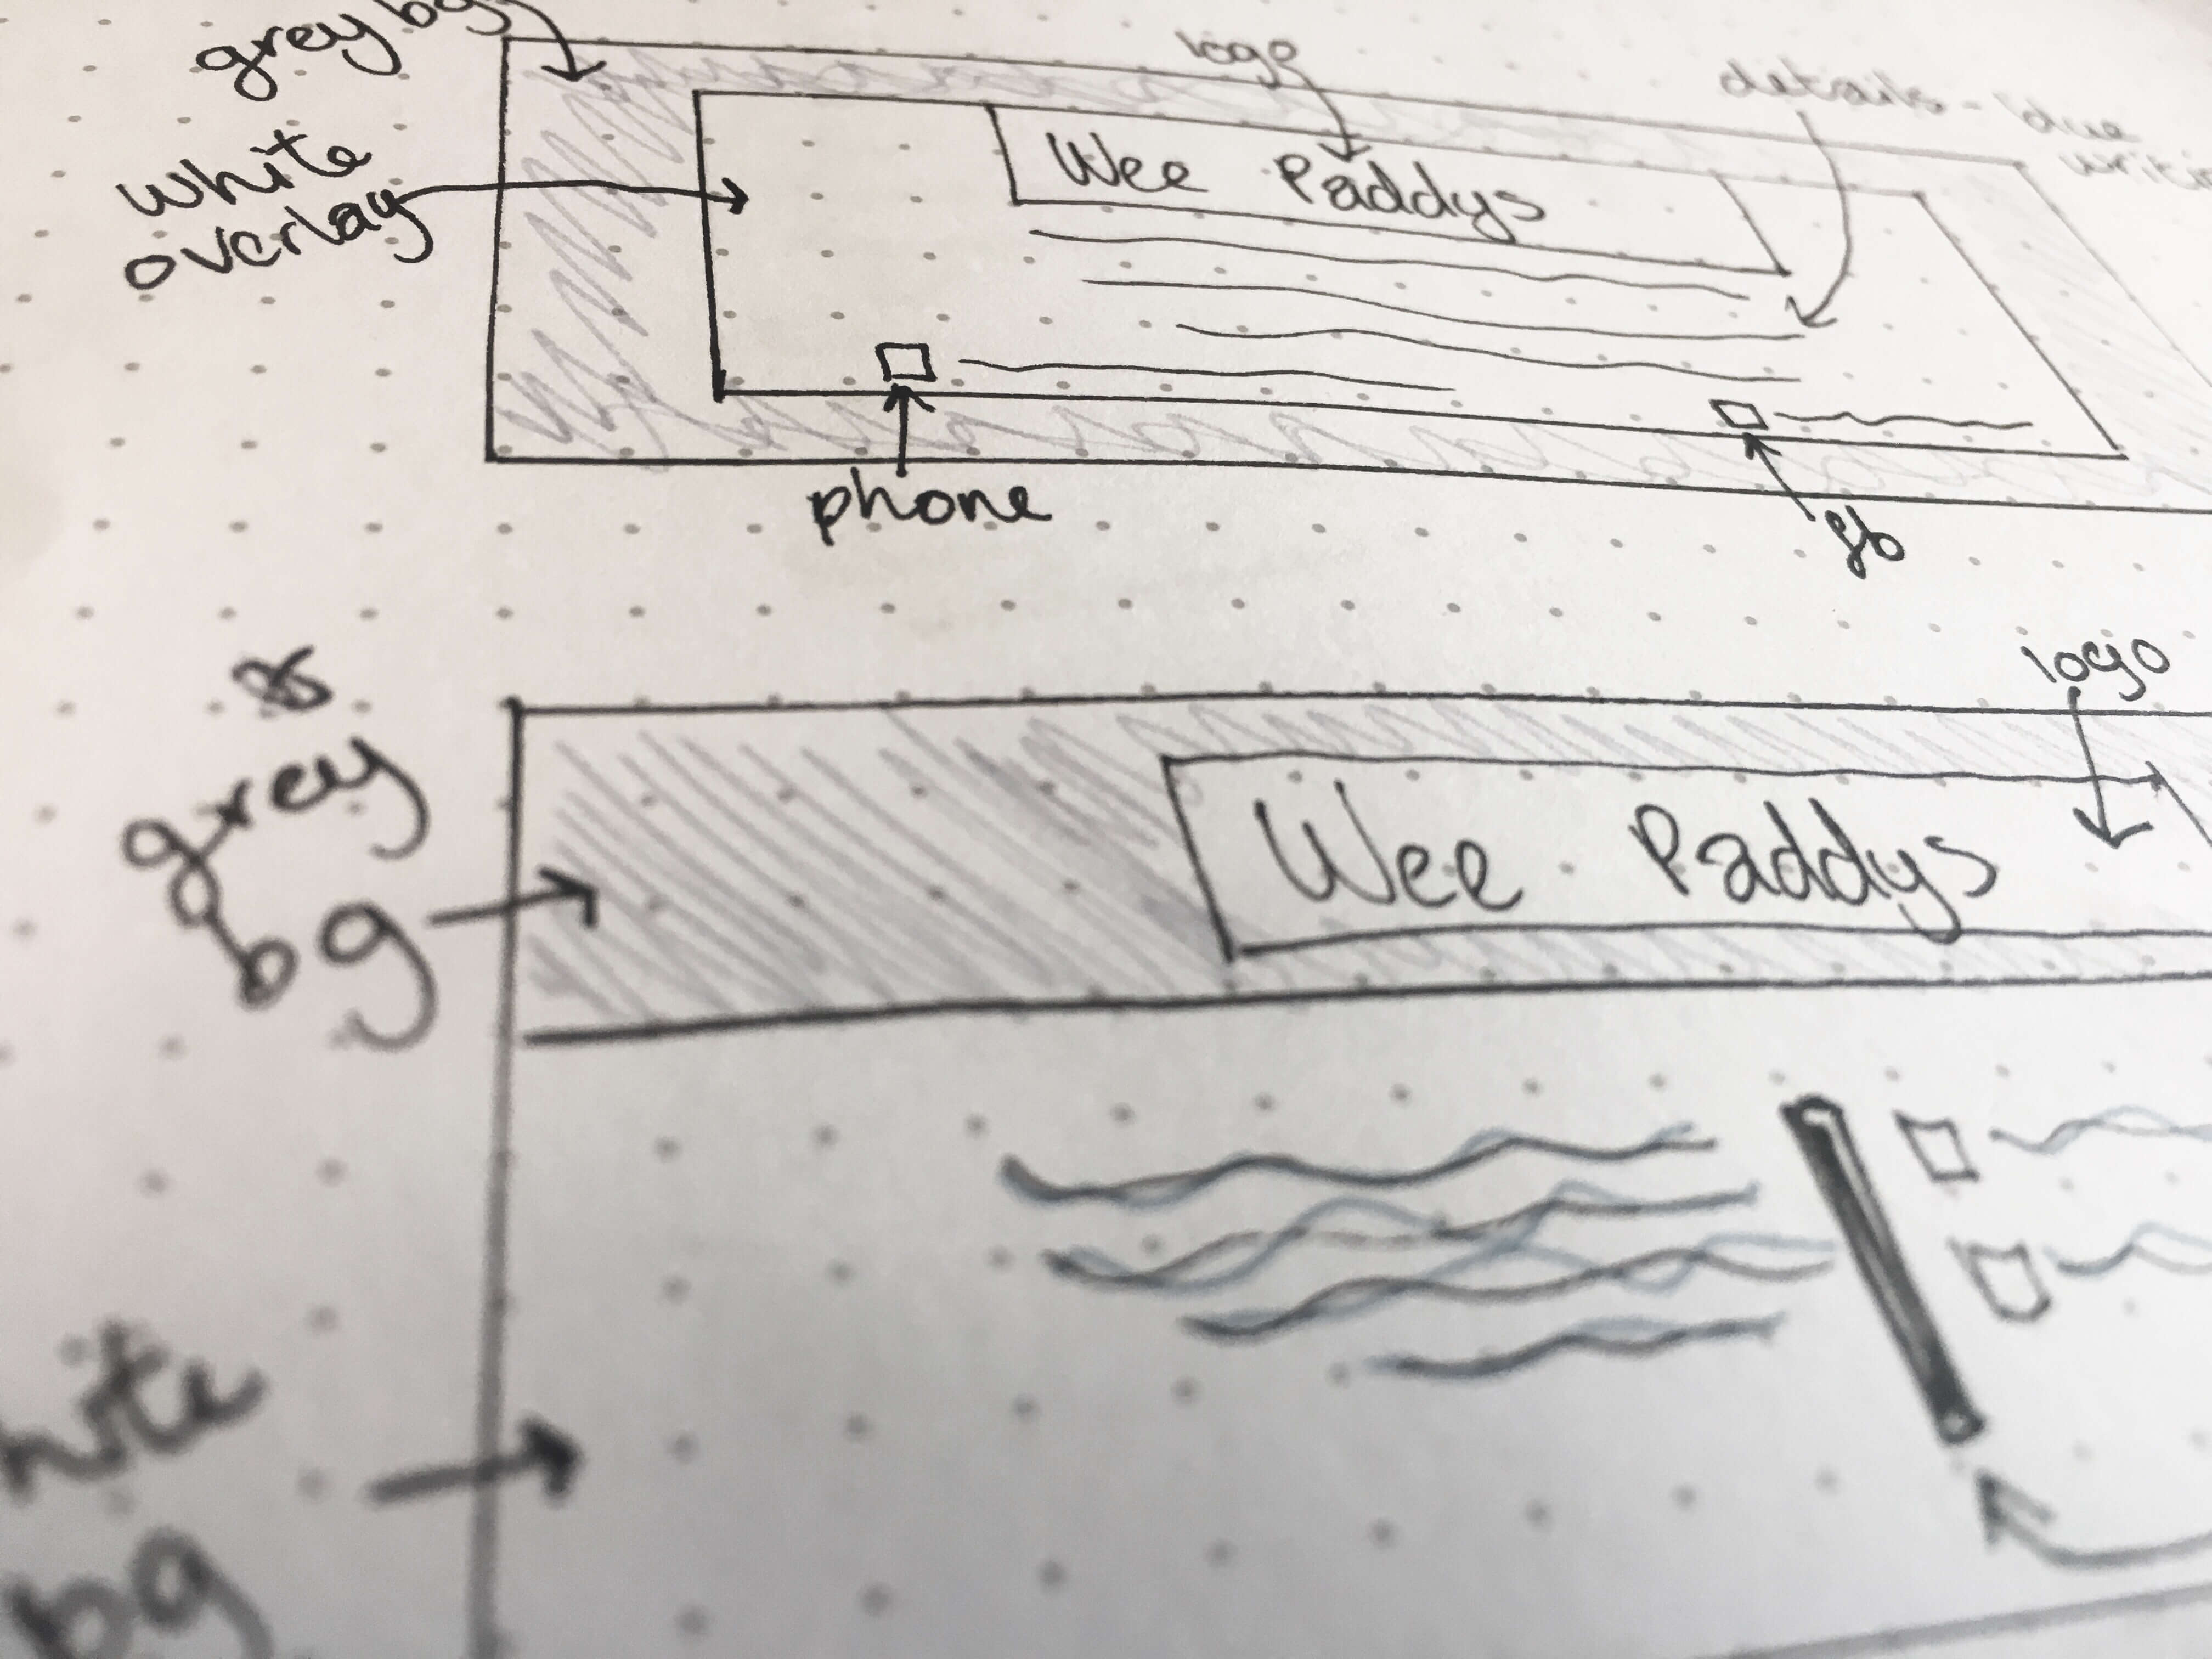 grey bg
logo
details - blue
white
overlay
Wee Paddys
phone
fb
logo
grey
bg
Wee Paddys
bg